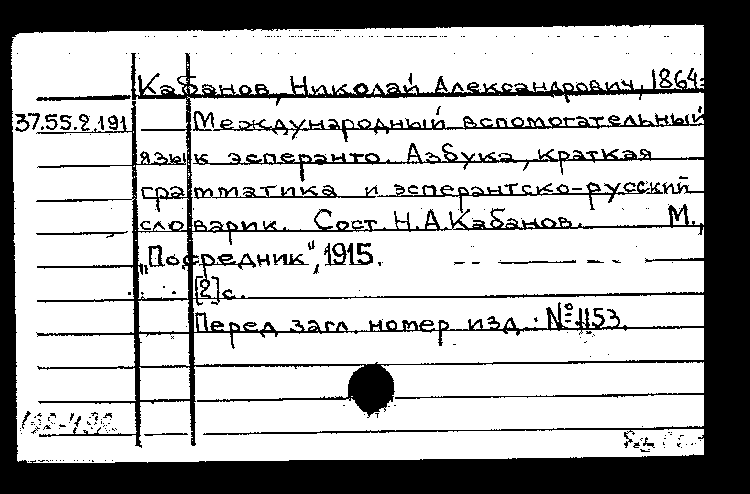 Кабанов, Николай Александрович, 1864-
37.55.2.191 Международный вспомогательный
язык эсперанто. Азбука, краткая
грамматика и эсперантско-русский
словарик. Сост. Н.А.Кабанов. М.,
"Посредник", 1915.
[2]с.
Перед загл. номер изд.: №1153.